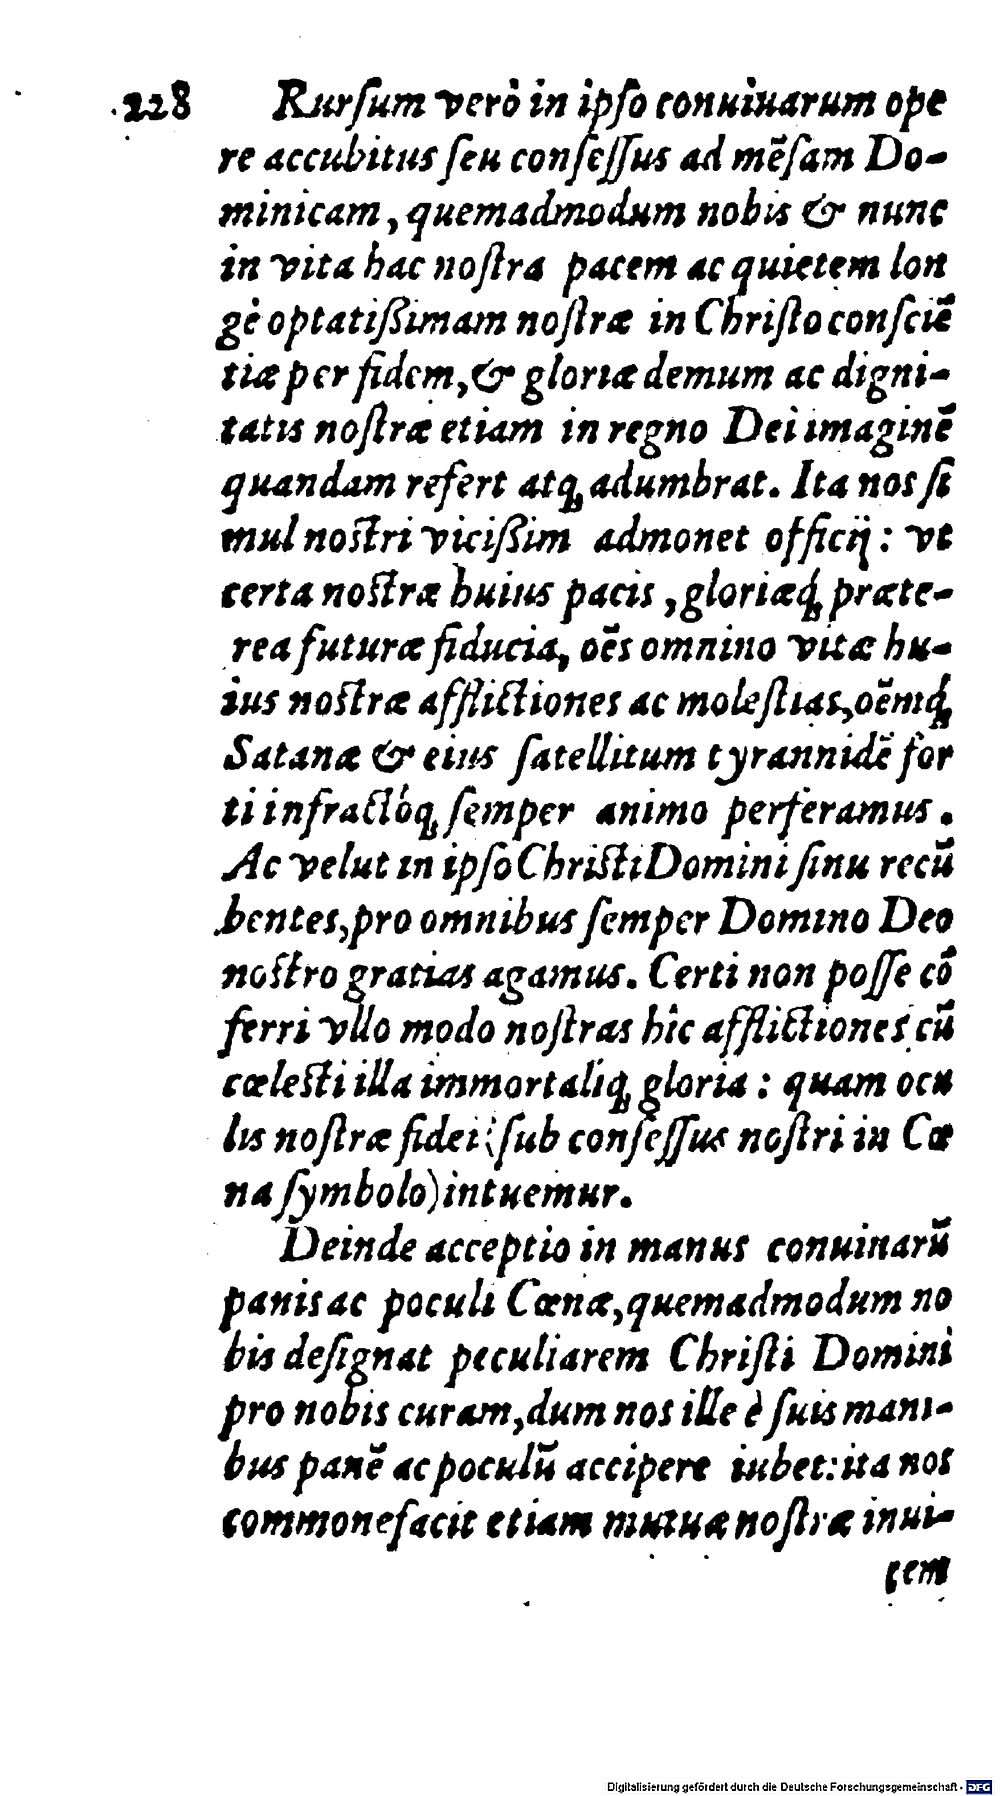 228 Rurſum verò in ipſo conuiuarum ope
re accubitus ſeu conſeſſus ad mēſam Do-
minicam, quemadmodum nobis & nunc
in vita hac noſtra pacem ac quietem lon
gè optatiſſimam noſtræ in Chriſto conſciē
tiæ per fidem, & gloriæ demum ac digni-
tatis noſtræ etiam in regno Dei imaginē
quandam refert atq; adumbrat. Ita nos ſi
mul noſtri viciſſim admonet officij: vt
certa noſtræ huius pacis, gloriæq́; præte-
rea futuræ fiducia, oēs omnino vitæ hu-
ius noſtræ afflictiones ac moleſtias, oēmq́;
Satanæ & eius ſatellitum tyrannidē for
ti infractóq; ſemper animo perferamus.
Ac velut in ipſo Chriſti Domini ſinu recū
bentes, pro omnibus ſemper Domino Deo
noſtro gratias agamus. Certi non poſſe cō
ferri vllo modo noſtras hîc afflictiones cū
cœleſti illa immortalíq; gloria: quam ocu
lis noſtræ fidei (ſub conſeſſus noſtri in Cœ
na ſymbolo) intuemur.
Deinde acceptio in manus conuiuarū
panis ac poculi Cœnæ, quemadmodum no
bis deſignat peculiarem Chriſti Domini
pro nobis curam, dum nos ille è ſuis mani-
bus panē ac poculū accipere iubet: ita nos
commonefacit etiam mutuæ noſtræ inui-
cem
Digitalisierung gefördert durch die Deutsche Forschungsgemeinschaft - DFG